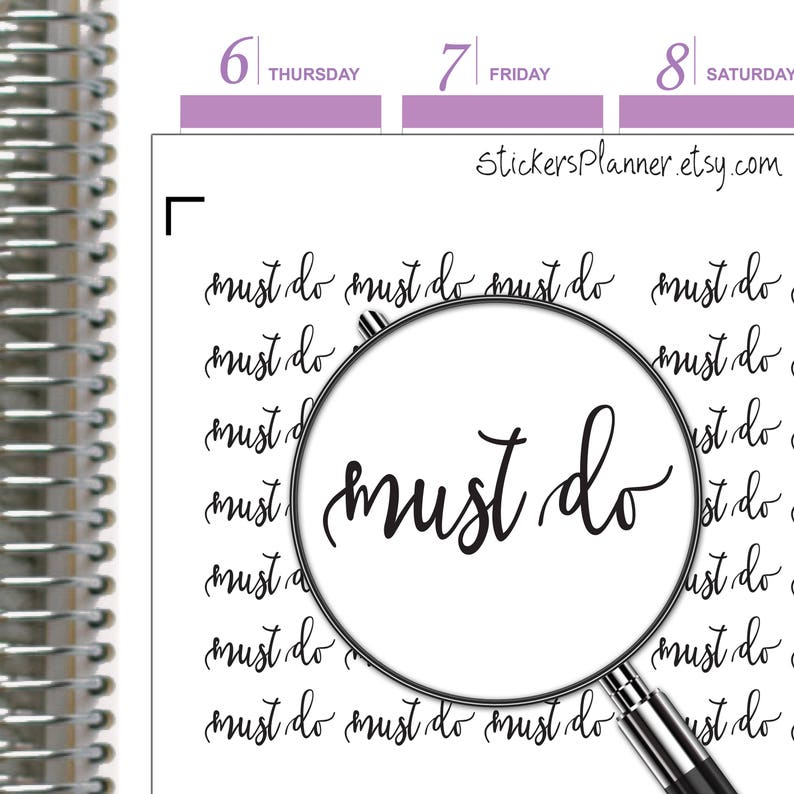 6 THURSDAY 7 FRIDAY 8 SATURDAY
StickersPlanner.etsy.com
must do must do must do must do
must do must do
must do must do
must do must do
must do
must do must do
must do must do
must do must do must do must do